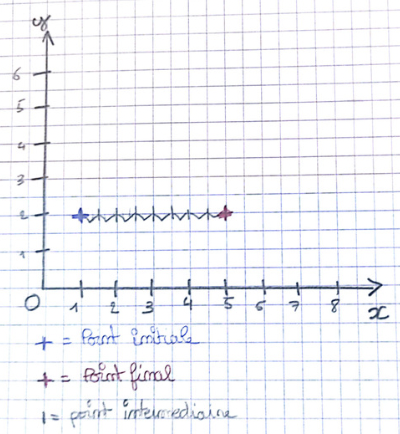 y
6
5
4
3
2
1
O 1 2 3 4 5 6 7 8 x
+ = Point initiale
+ = Point final
| = point intermediaire